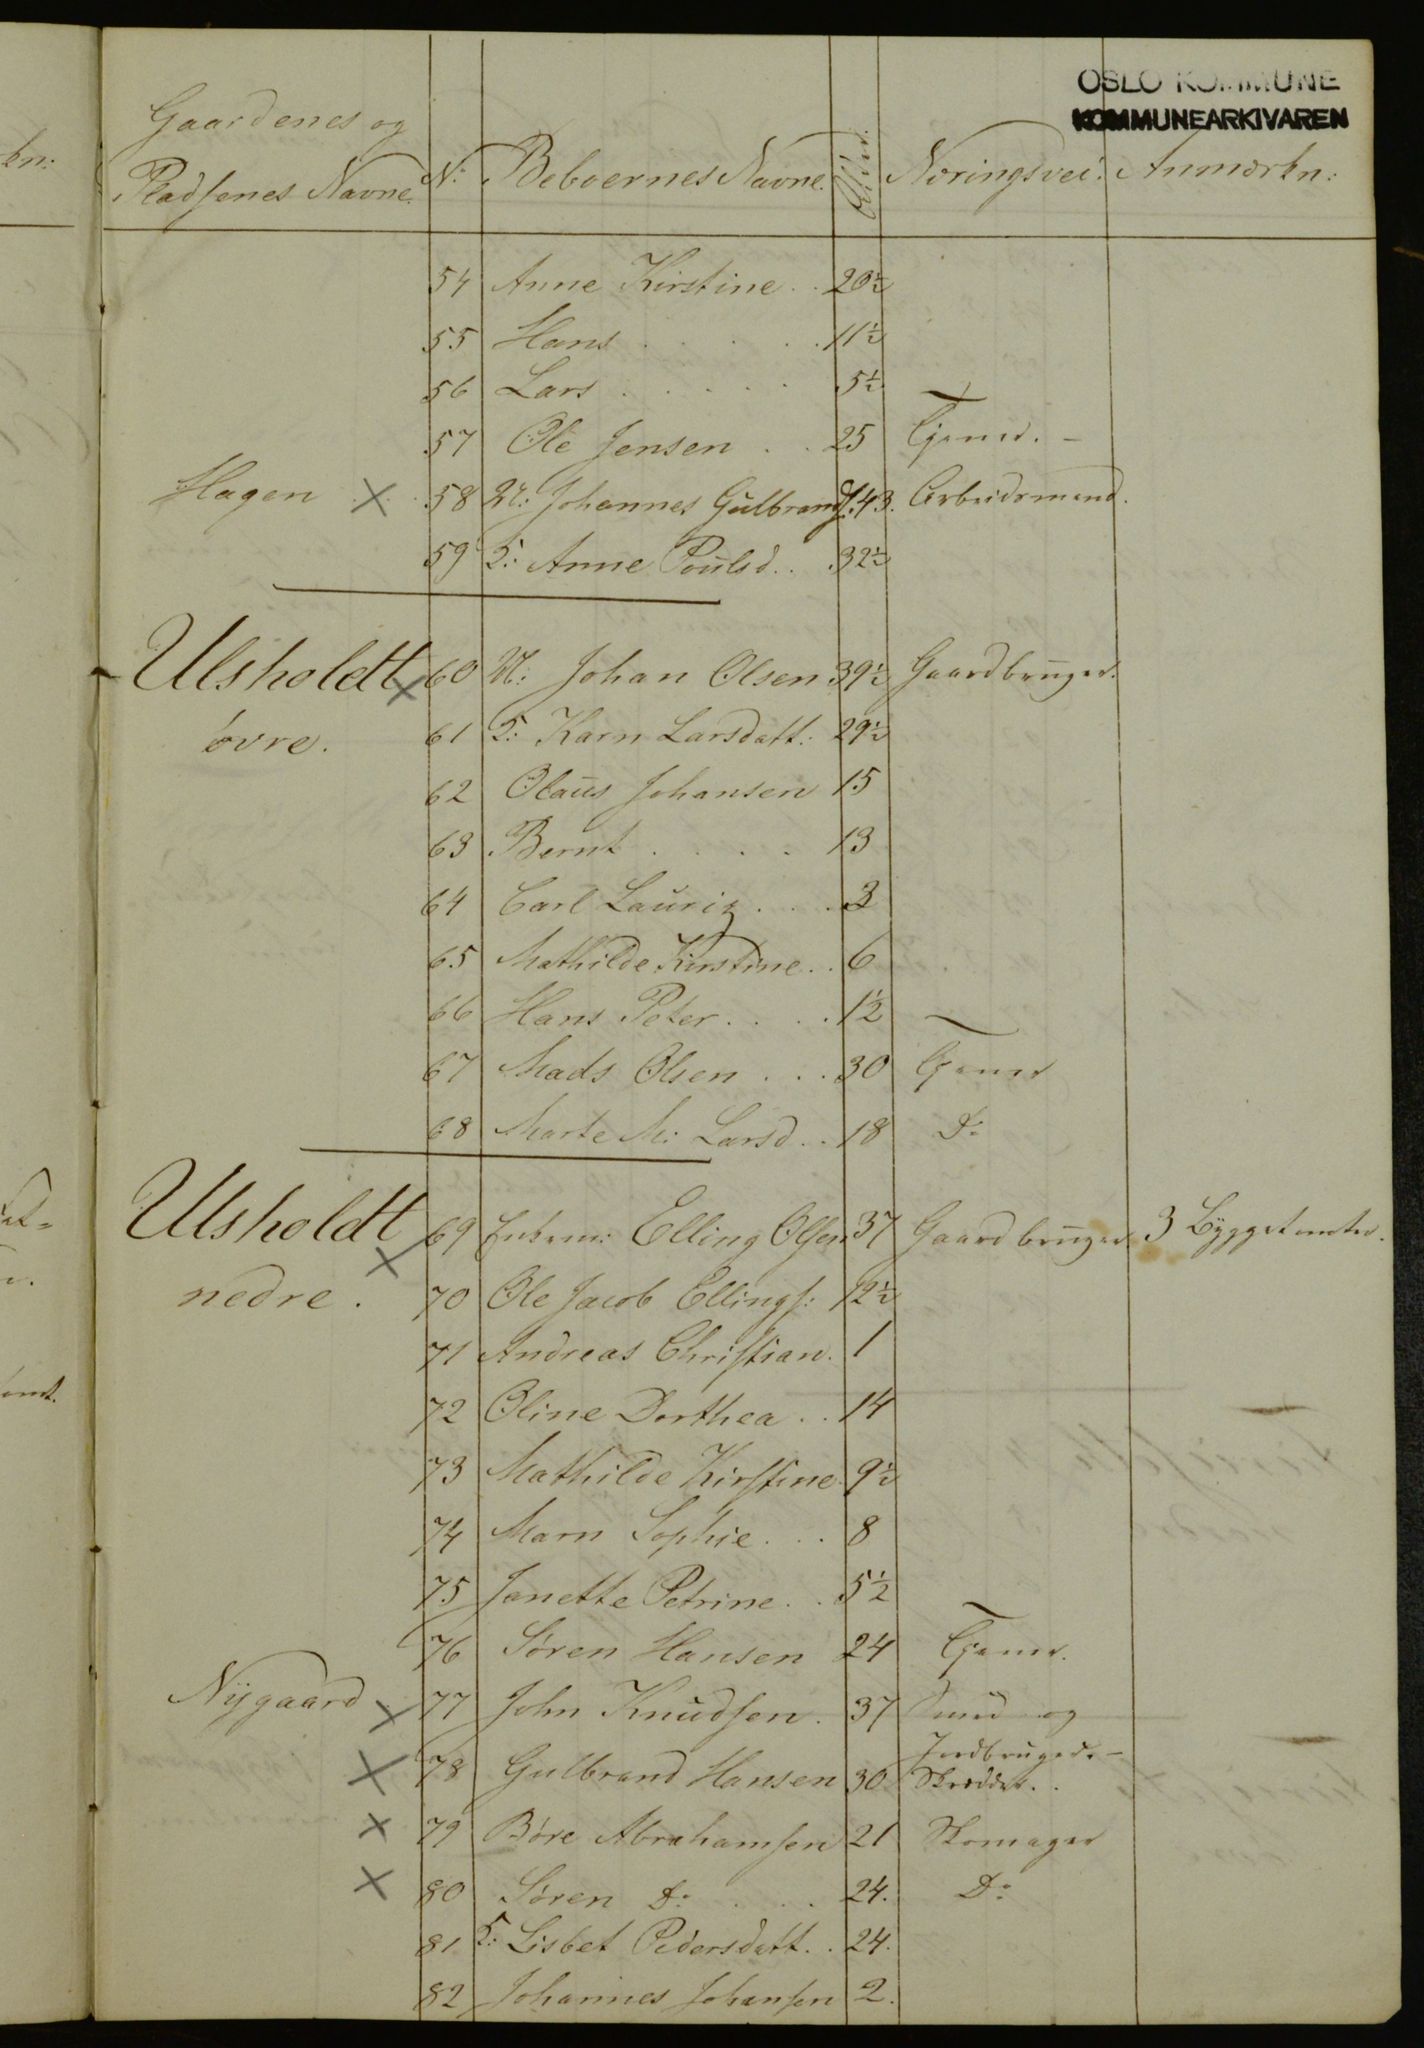 OSLO KOMMUNE
KOMMUNEARKIVAREN
Gaardenes og
Pladsenes Navne. No. Beboernes Navne. Alder. Næringsvei. Anmærkn:
54 Anne Kirstine . . 20½
55 Hans . . . . . 11½
56 Lars . . . . . 5½
57 Ole Jensen . . 25 Tjener. -
Hagen . X . 58 M: Johannes Gulbrands. 43. Arbeidsmand.
59 K: Anne Poulsd . . 32½
Ulsholdt X 60 M: Johan Olsen 39½ Gaardbruger.
øvre. 61 K: Karn Larsdatt: 29½
62 Olaus Johansen 15
63 Bernt . . . . 13
64 Carl Lauriz . . . 3
65 Mathilde Kirstine . . 6
66 Hans Peter . . . . 1½
67 Mads Olsen . . . 30 Tjener
68 Marte M: Larsd . . 18 Do
Ulsholdt X 69 Enkem: Elling Olsen 37 Gaardbruger. 3 Byggetomter.
nedre . 70 Ole Jacob Ellings: 12½
71 Andreas Christian. 1
72 Oline Dorthea . . 14
73 Mathilde Kirstine 9½
74 Marn Sophie . . . 8
75 Janette Petrine . . 5½
76 Søren Hansen 24 Tjener.
Nygaard X 77 John Knudsen . 37 Smed og
Jordbruger. -
X 78 Gulbrand Hansen 30 Skrædder. .
X 79 Børe Abrahamsen 21 Skomager
X 80 Søren Do . . . 24. Do
81 K: Lisbet Pedersdatt. . 24.
82 Johannes Johansen 2.